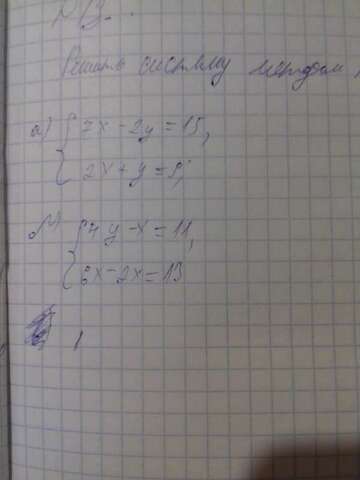 Решить систему методом
а) { 7x - 2y = 15,
2x + y = 9;
4y - x = 11,
6x - 2x = 13